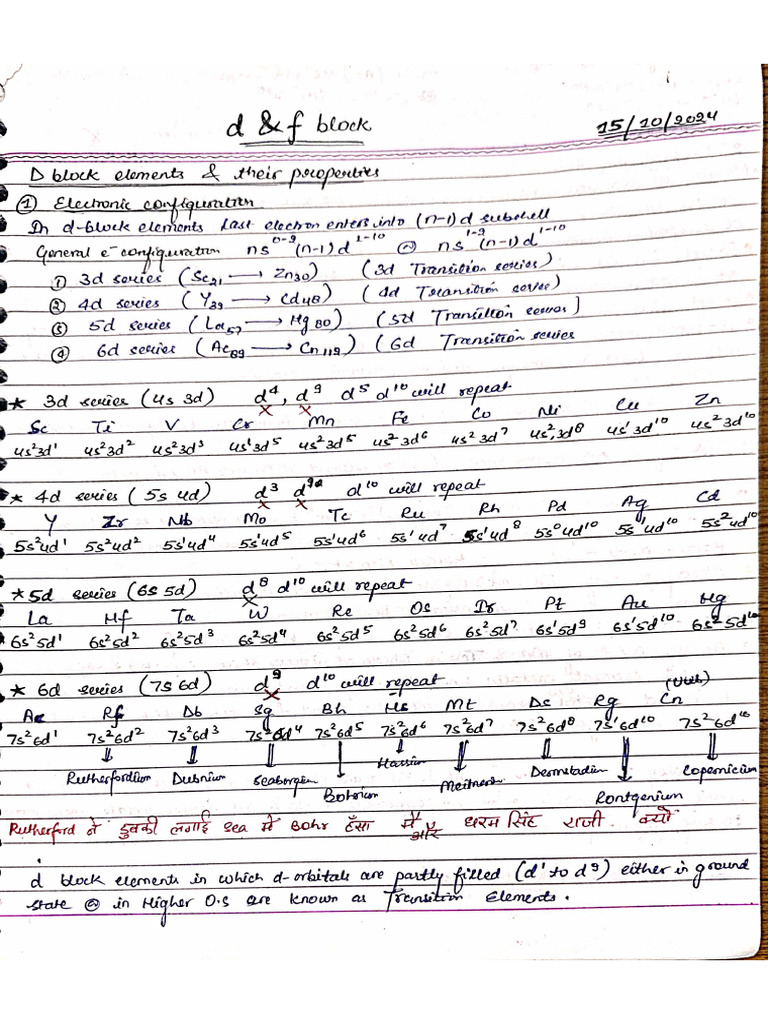 d & f block
15/10/2024
D block elements & their properties
① Electronic configuration
In d-block elements Last electron enters into (n-1)d subshell
General e⁻ configuration ns⁰⁻² (n-1)d¹⁻¹⁰ or ns¹⁻² (n-1)d¹⁻¹⁰
① 3d series (Sc₂₁ → Zn₃₀) (3d Transition series)
② 4d series (Y₃₉ → Cd₄₈) (4d Transition series)
③ 5d series (La₅₇ → Hg₈₀) (5d Transition series)
④ 6d series (Ac₈₉ → Cn₁₁₂) (6d Transition series
★ 3d series (4s 3d) d⁴, d⁹ d⁵ d¹⁰ will repeat
x x
Sc Ti V Cr Mn Fe Co Ni Cu Zn
4s²3d¹ 4s²3d² 4s²3d³ 4s¹3d⁵ 4s²3d⁵ 4s²3d⁶ 4s²3d⁷ 4s²,3d⁸ 4s¹3d¹⁰ 4s²3d¹⁰
★ 4d series (5s 4d) d³ d⁹ d¹⁰ will repeat
x x
Y Zr Nb Mo Tc Ru Rh Pd Ag Cd
5s²4d¹ 5s²4d² 5s¹4d⁴ 5s¹4d⁵ 5s¹4d⁶ 5s¹4d⁷ 5s¹4d⁸ 5s⁰4d¹⁰ 5s¹4d¹⁰ 5s²4d¹⁰
★ 5d series (6s 5d) d⁸ d¹⁰ will repeat
x
La Hf Ta W Re Os Ir Pt Au Hg
6s²5d¹ 6s²5d² 6s²5d³ 6s²5d⁴ 6s²5d⁵ 6s²5d⁶ 6s²5d⁷ 6s¹5d⁹ 6s¹5d¹⁰ 6s²5d¹⁰
★ 6d series (7s 6d) d⁹ d¹⁰ will repeat
x
(Uub)
Ac Rf Db Sg Bh Hs Mt Ds Rg Cn
7s²6d¹ 7s²6d² 7s²6d³ 7s²6d⁴ 7s²6d⁵ 7s²6d⁶ 7s²6d⁷ 7s²6d⁸ 7s¹6d¹⁰ 7s²6d¹⁰
Rutherfordium Dubnium Seaborgium Bohrium Hassium Meitnerium Dermstadium Rontgenium Copernicium
Rutherford ने डुबकी लगाई Sea में Bohr हँसा मैं और धरम सिंह राजी क्यों
d block elements in which d-orbitals are partly filled (d¹ to d⁹) either in ground
state or in Higher O.S are known as Transition Elements.